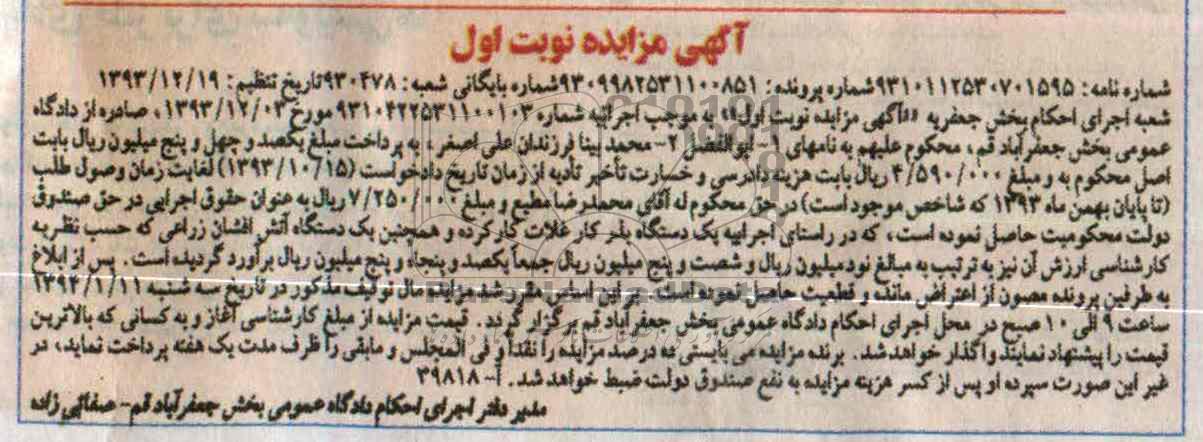 آگهی مزایده نوبت اول
شماره نامه: ۹۳۱۰۱۱۲۵۳۰۷۰۱۵۹۵شماره پرونده: ۹۳۰۹۹۸۲۵۳۱۱۰۰۸۵۱شماره بایگانی شعبه: ۹۳۰۴۷۸تاریخ تنظیم: ۱۳۹۳/۱۲/۱۹
شعبه اجرای احکام بخش جعفریه «آگهی مزایده نوبت اول» به موجب اجرائیه شماره ۹۳۱۰۴۲۲۵۳۱۱۰۰۱۰۳ مورخ ۱۳۹۳/۱۲/۰۳، صادره از دادگاه
عمومی بخش جعفرآباد قم، محکوم علیهم به نامهای ۱-ابوالفضل ۲-محمد بینا فرزندان علی اصغر، به پرداخت مبلغ یکصد و چهل و پنج میلیون ریال بابت
اصل محکوم به و مبلغ ۴/۵۹۰/۰۰۰ ریال بابت هزینه دادرسی و خسارت تأخیر تأدیه از زمان تاریخ دادخواست (۱۳۹۳/۱۰/۱۵) لغایت زمان وصول طلب
(تا پایان بهمن ماه ۱۳۹۳ که شاخص موجود است) در حق محکوم له آقای محمدرضا مطیع و مبلغ ۷/۲۵۰/۰۰۰ ریال به عنوان حقوق اجرایی در حق صندوق
دولت محکومیت حاصل نموده است، که در راستای اجراییه یک دستگاه بذر کار غلات کارکرده و همچنین یک دستگاه آتش افشان زراعی که حسب نظریه
کارشناسی ارزش آن نیز به ترتیب به مبالغ نود میلیون ریال و شصت و پنج میلیون ریال جمعاً یکصد و پنجاه و پنج میلیون ریال برآورد گردیده است. پس از ابلاغ
به طرفین پرونده مصون از اعتراض مانده و قطعیت حاصل نموده است. بر این اساس مقرر شد مزایده مال توقیف مذکور در تاریخ سه شنبه ۱۳۹۴/۱/۱۱
ساعت ۹ الی ۱۰ صبح در محل اجرای احکام دادگاه عمومی بخش جعفرآباد قم برگزار گردد. قیمت مزایده از مبلغ کارشناسی آغاز و به کسانی که بالاترین
قیمت را پیشنهاد نمایند واگذار خواهد شد. برنده مزایده می بایستی ده درصد مزایده را نقداً و فی المجلس و مابقی را ظرف مدت یک هفته پرداخت نماید، در
غیر این صورت سپرده او پس از کسر هزینه مزایده به نفع صندوق دولت ضبط خواهد شد. آ-۳۹۸۱۸
مدیر دفتر اجرای احکام دادگاه عمومی بخش جعفرآباد قم- صفائی زاده